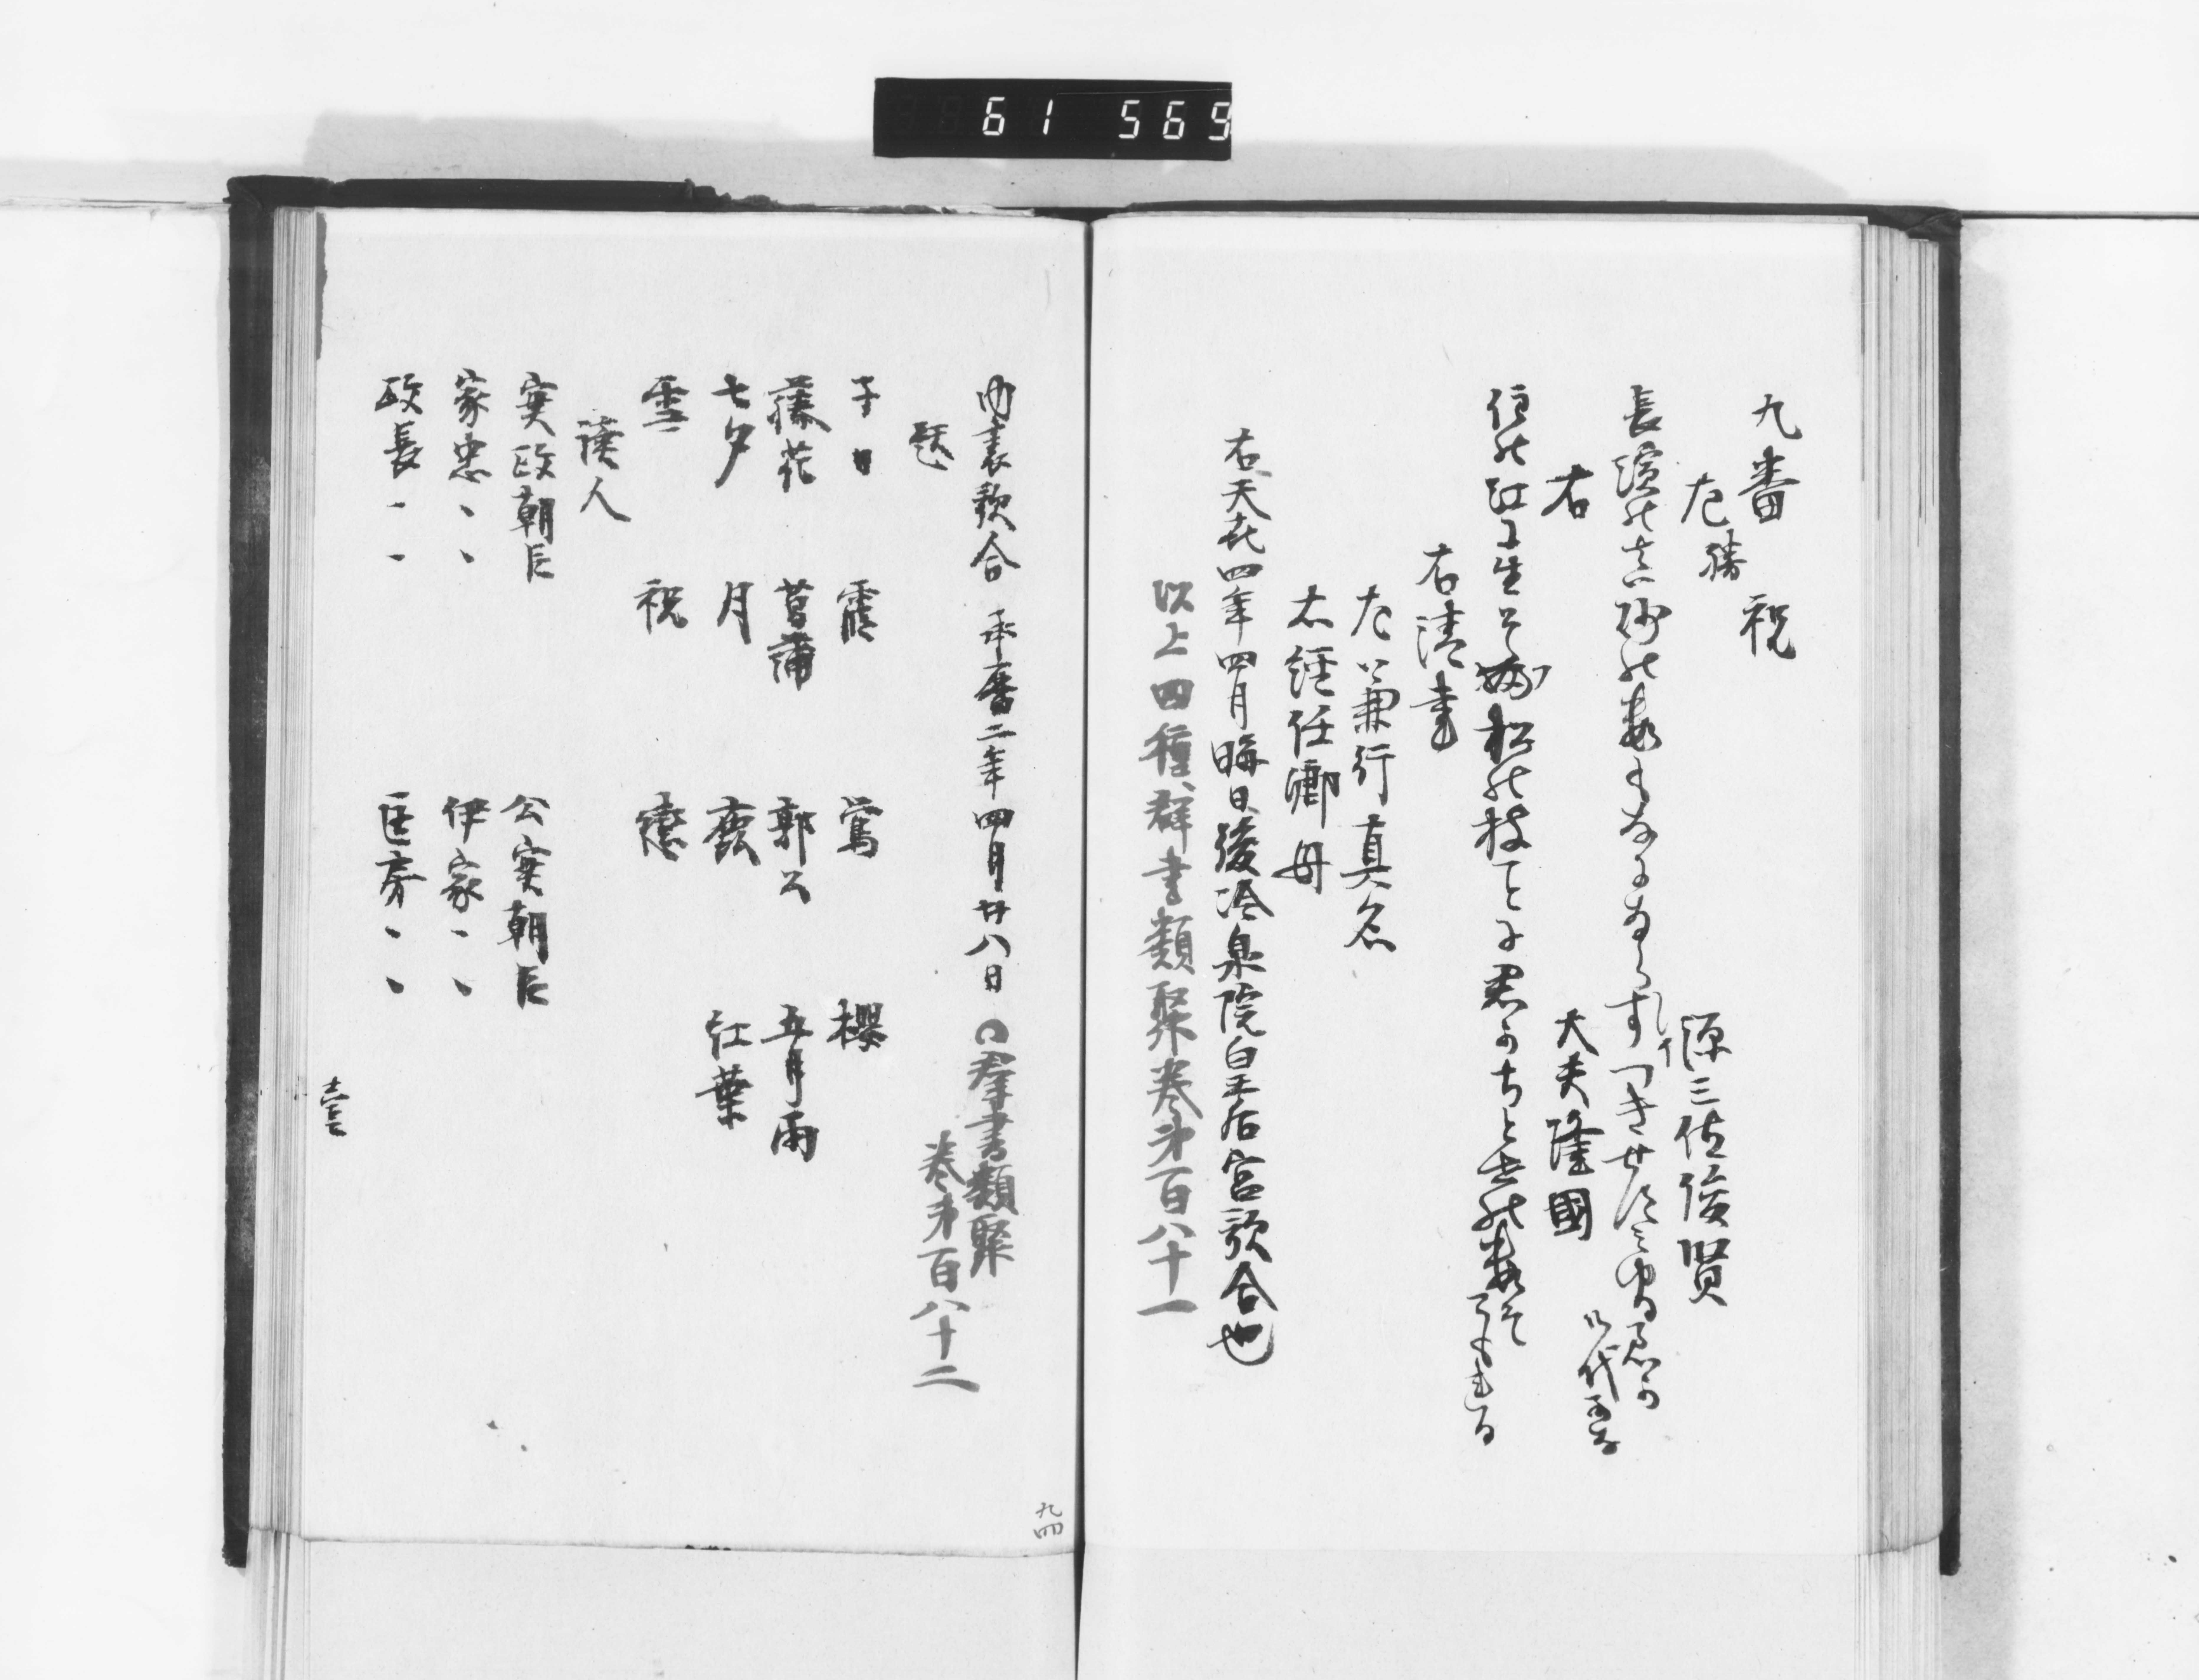 61 569
九番　祝
左勝　源三位俊賢
長濱の真砂の数もなにならすつきせす
右　大夫隆國
住の江に生そふ松の枝ことに君かちとせの数そ
こもれる
右清書
左ハ兼行真名
右経任卿母
右天喜四年四月晦日後冷泉院皇后宮歌合也
以上四種群書類聚巻第百八十一
内裏歌合　承暦二年四月廿八日　〇群書類聚
巻第百八十二
題
子日　霞　鶯　櫻
藤花　菖蒲　郭公　五月雨
七夕　月　鹿　紅葉
雪　祝　戀
読人
実政朝臣　公実朝臣
家忠、、　伊家、、
政長、、　匡房、、
壹
九四